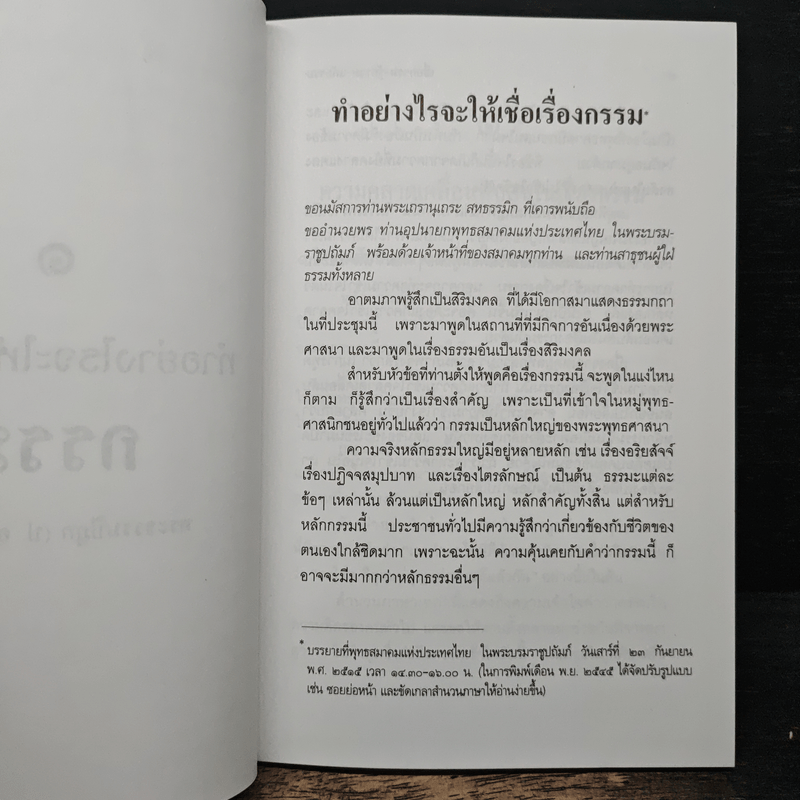 ทำอย่างไรจะให้เชื่อเรื่องกรรม*
ขอนมัสการท่านพระเถรานุเถระ สหธรรมิก ที่เคารพนับถือ
ขออำนวยพร ท่านอุปนายกพุทธสมาคมแห่งประเทศไทย ในพระบรม-
ราชูปถัมภ์ พร้อมด้วยเจ้าหน้าที่ของสมาคมทุกท่าน และท่านสาธุชนผู้ใฝ่
ธรรมทั้งหลาย
อาตมภาพรู้สึกเป็นสิริมงคล ที่ได้มีโอกาสมาแสดงธรรมกถา
ในที่ประชุมนี้ เพราะมาพูดในสถานที่ที่มีกิจการอันเนื่องด้วยพระ
ศาสนา และมาพูดในเรื่องธรรมอันเป็นเรื่องสิริมงคล
สำหรับหัวข้อที่ท่านตั้งให้พูดคือเรื่องกรรมนี้ จะพูดในแง่ไหน
ก็ตาม ก็รู้สึกว่าเป็นเรื่องสำคัญ เพราะเป็นที่เข้าใจในหมู่พุทธ-
ศาสนิกชนอยู่ทั่วไปแล้วว่า กรรมเป็นหลักใหญ่ของพระพุทธศาสนา
ความจริงหลักธรรมใหญ่มีอยู่หลายหลัก เช่น เรื่องอริยสัจจ์
เรื่องปฏิจจสมุปบาท และเรื่องไตรลักษณ์ เป็นต้น ธรรมะแต่ละ
ข้อๆ เหล่านั้น ล้วนแต่เป็นหลักใหญ่ หลักสำคัญทั้งสิ้น แต่สำหรับ
หลักกรรมนี้ ประชาชนทั่วไปมีความรู้สึกว่าเกี่ยวข้องกับชีวิตของ
ตนเองใกล้ชิดมาก เพราะฉะนั้น ความคุ้นเคยกับคำว่ากรรมนี้ ก็
อาจจะมีมากกว่าหลักธรรมอื่นๆ
* บรรยายที่พุทธสมาคมแห่งประเทศไทย ในพระบรมราชูปถัมภ์ วันเสาร์ที่ ๒๓ กันยายน
พ.ศ. ๒๕๑๕ เวลา ๑๔.๓๐–๑๖.๐๐ น. (ในการพิมพ์เดือน พ.ย. ๒๕๔๕ ได้จัดปรับรูปแบบ
เช่น ซอยย่อหน้า และขัดเกลาสำนวนภาษาให้อ่านง่ายขึ้น)